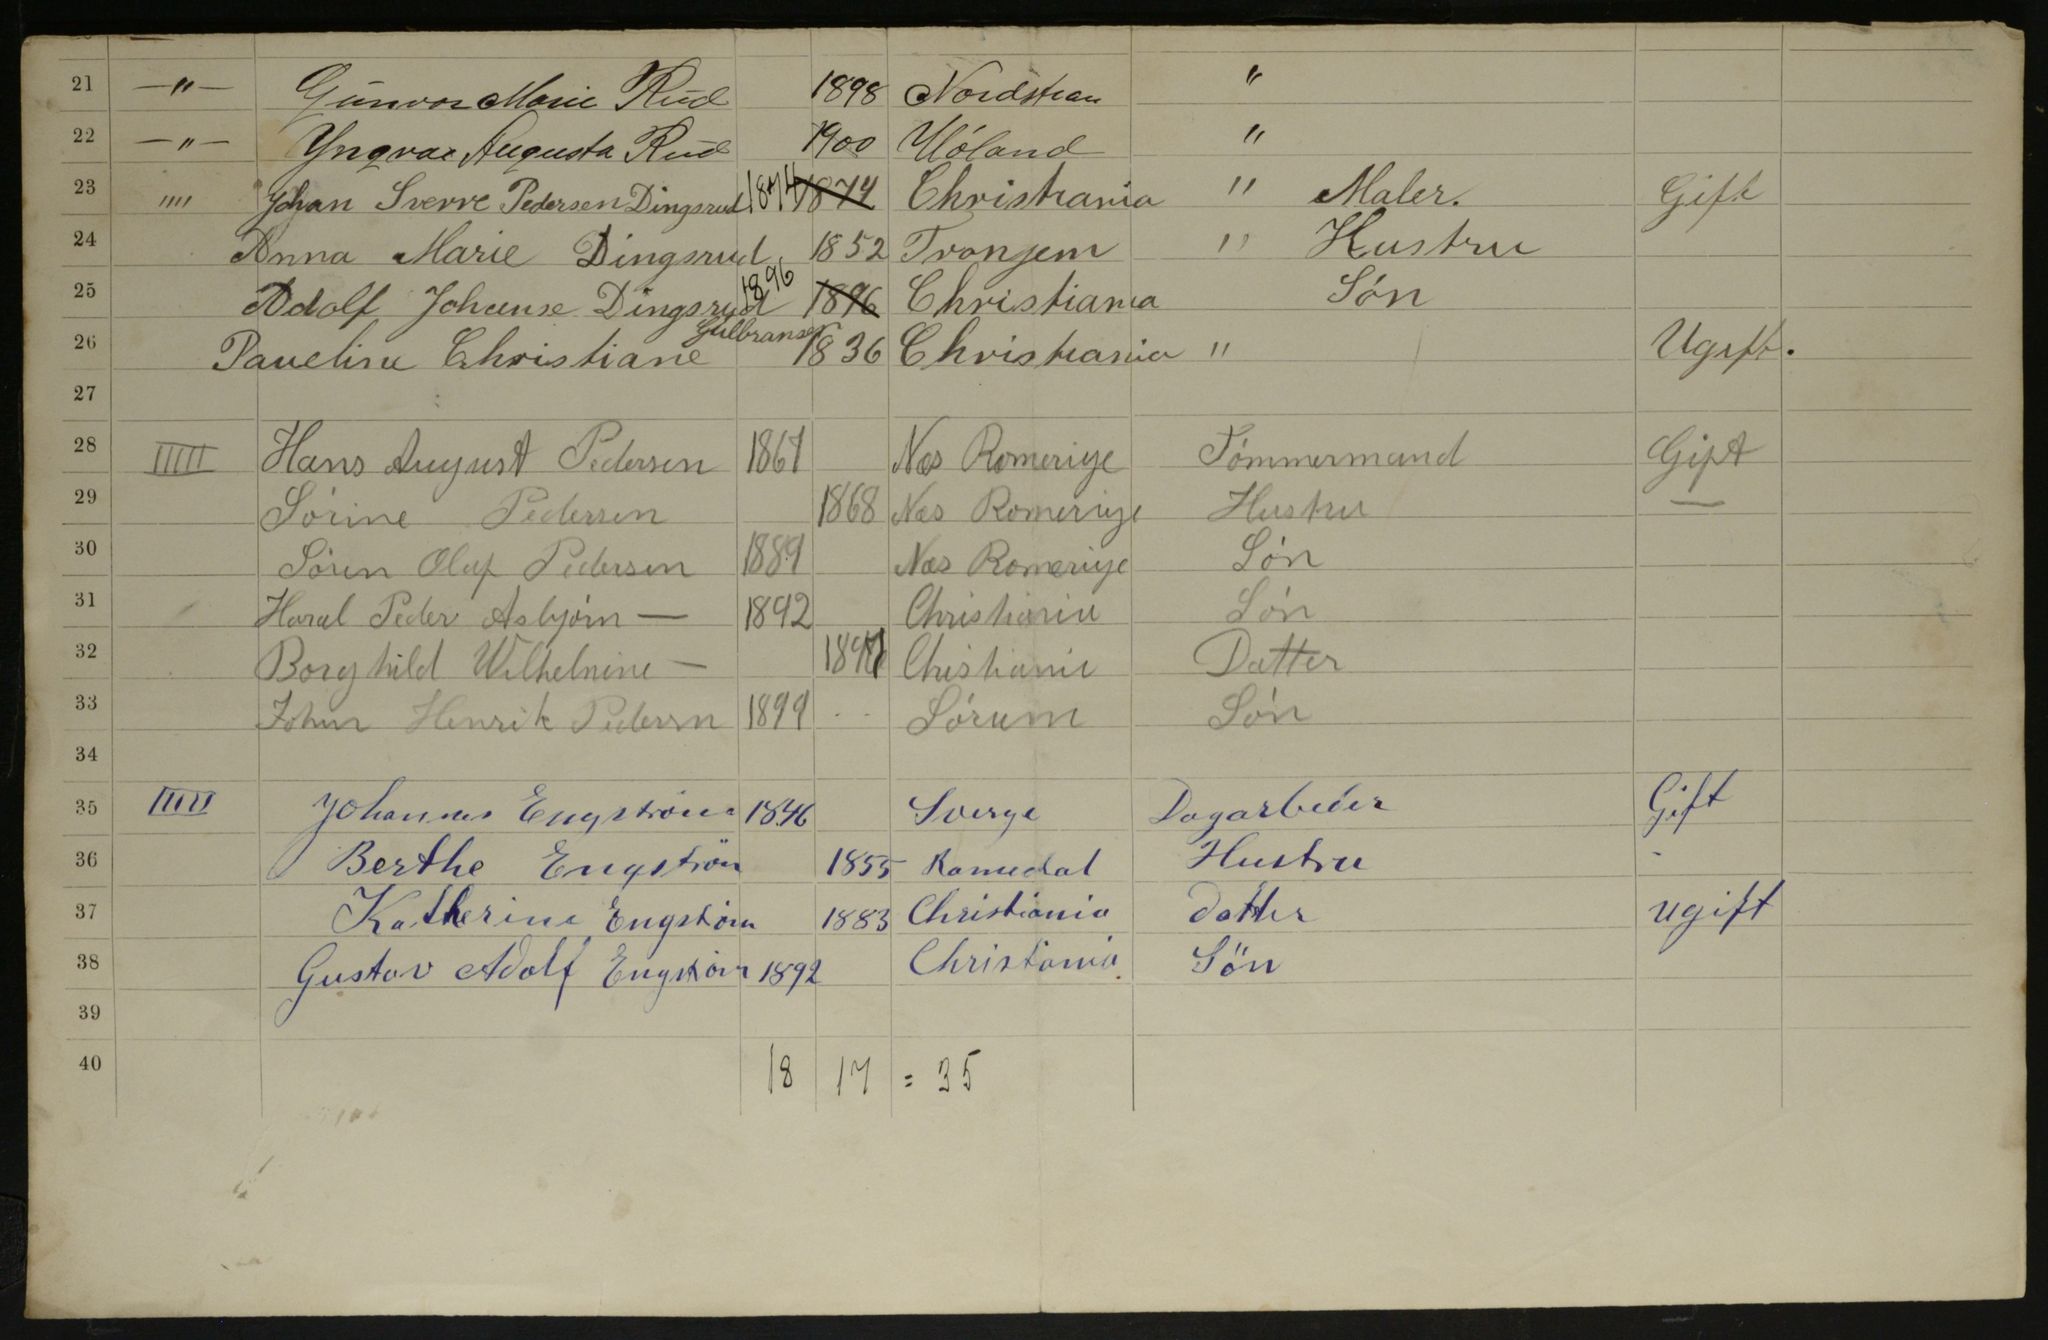 21 —"— Gunvor Marie Rud 1898 Nordstran "
22 —"— Yngvar Augusta Rud 1900 "
23 "" Johan Sverre Pedersen Dingsrud 1874 1874 Christiania " Maler. Gift
24 Anna Marie Dingsrud 1852 Tronjem " Hustru
25 Adolf Johanse Dingsrud 1896 1896 Christiania Són
Gulbransen
26 Paueline Christiane 1836 Christiania " Ugift.
27
28 IIIII Hans August Pedersen 1867 Næs Romerige Tómmermand Gift
29 Sórine Pedersen 1868 Næs Romerige Hustru —
30 Sóren Oluf Pedersen 1889 Næs Romerige Són
31 Haral Peder Asbjórn — 1892 Christiania Són
32 Borghild Wilhelmine — Christiania Datter
33 Johan Henrik Pedersen 1899 Sórum Són
34
35 IIIII Johannes Engström 1846 Sverge Dagarbeider Gift
36 Berthe Engström 1855 Romedal Hustru -
37 Katherine Engström 1883 Christiania Datter ugift
38 Gustav Adolf Engström 1892 Christiania Sön
39
40 18 17 = 35